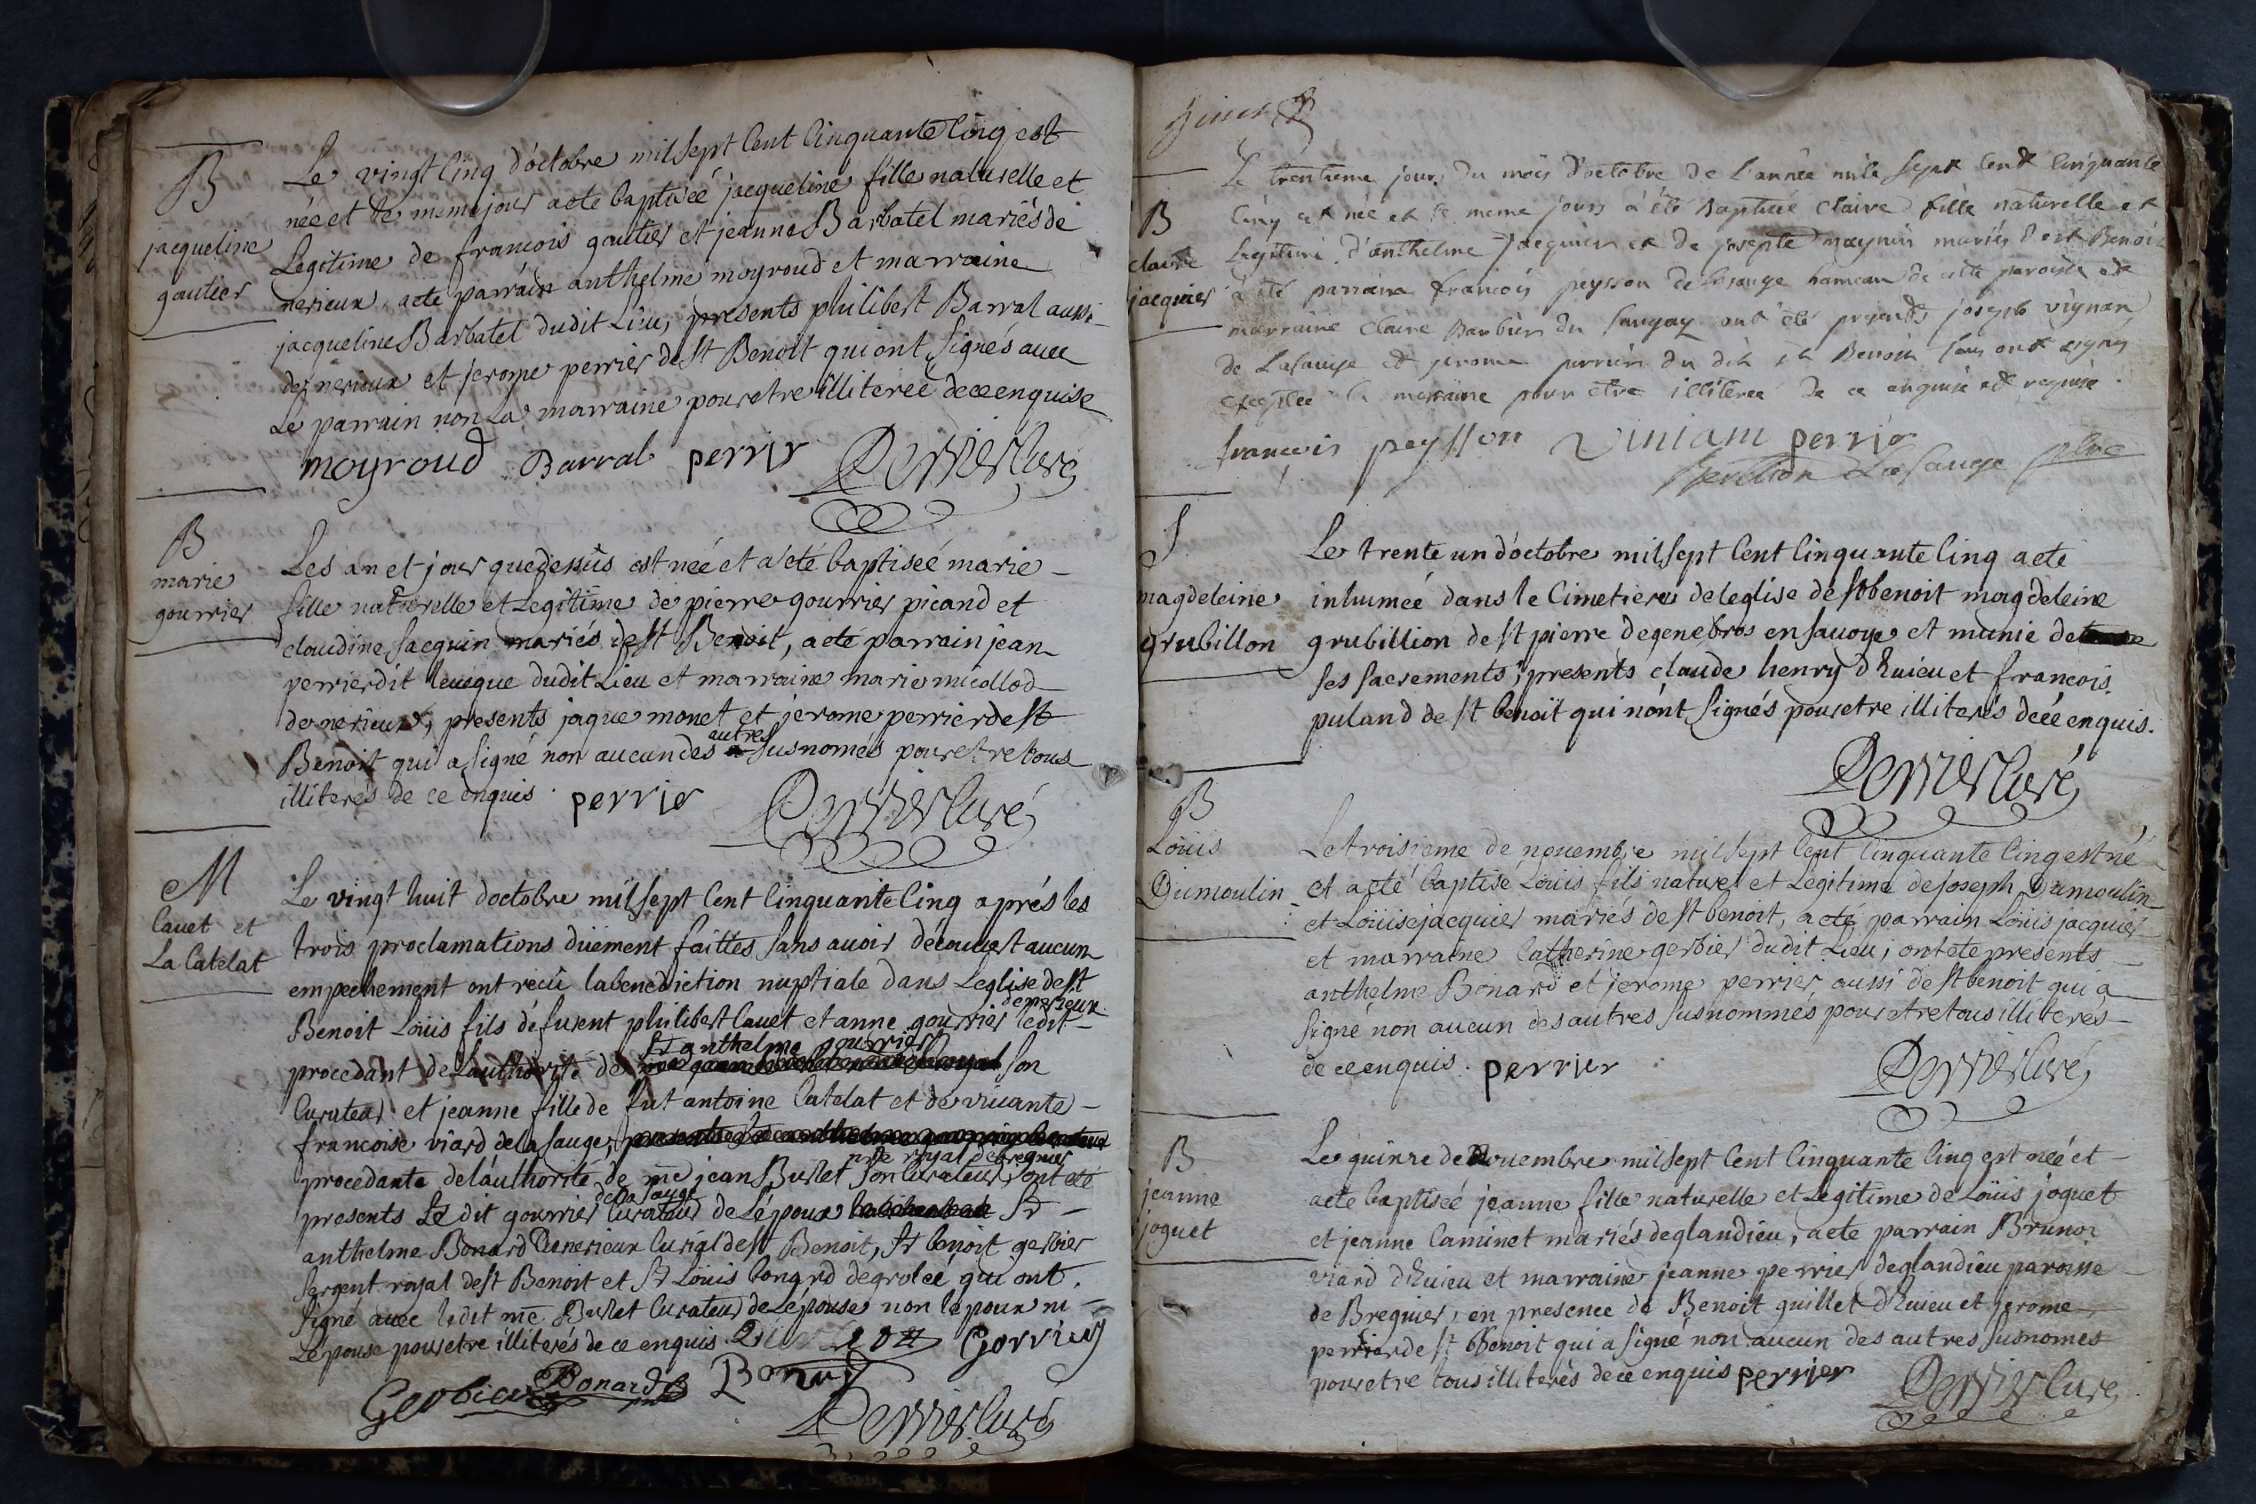 B
jacqueline
gautier
Le vingt cinq d'octobre mil sept cent cinquante cinq est
née et le meme jour a eté baptiseé jacqueline fille naturelle et
Legitime de francois gautier et jeanne Barbatel mariés de
nerieux, a eté parrain anthelme moyroud et marraine
jacqueline Barbatel dudit Lieu, presents philibert Barral aussi
de nerieux et jerome perrier de st Benoit qui ont signés avec
Le parrain non La marraine pour etre illitereé de ce enquise
moyroud Barral perrier Perrier Curé
B
marie
gourrier
Les an et jour que dessus est neé et a eté baptiseé marie
fille naturelle et Legitime de pierre gourrier picand et
claudine jacquin mariés de st Benoit, a eté parrain jean
perrier dit leveque dudit Lieu et marraine marie micollod
de nerieux, presents jaque monet et jerome perrier de st
Benoit qui a signé non aucun des autres susnomés pour etre tous
illiterés de ce enquis. perrier Perrier Curé
M
Cavet et
La Catelat
Le vingt huit doctobre mil sept cent cinquante cinq aprés les
trois proclamations düement faittes sans avoir découvert aucun
empechement ont recû la benediction nuptiale dans Leglise de st
Benoit Loüis fils de furent philibert Cavet et anne gourrier de nerieux ledit
procedant de l'authorité de sr anthelme gourrier son
Curateur et jeanne fille de fut antoine Catelat et de vivante
francoise viard de la sauge,
procedante de l'authorité de me jean Burlet nore royal de bregnier son Curateur, ont eté
presents Le dit gourrier de la sauge Curateur de L'époux sr
anthelme Bonard de nerieux Curial de st Benoit, sr benoit gerbier
sergent royal de st Benoit et sr Loüis bonard de groleé qui ont
signé avec ledit me Burlet Curateur de L'épouse non l'epoux ni
L'epouse pour etre illiterés de ce enquis Gorrier
Gerbier Bonard Bonard
Perrier Curé
B
claire
jacquier
Le trentieme jour du mois d'octobre de L'année mile sept cent cinquante
cinq est née et le meme jours a été Baptisée claire fille naturelle et
Legitime d'anthelme jacquier et de josepte moynier mariés de st Benoit
a été parrain francois peysson de lasauge hameau de cette paroisse et
marraine claire Barbier du sangey ont été presents joseph vignan
de Lasauge et jerome perrier du dit st Benoit tous ont signés
exceptée la marraine pour etre illiterée de ce enquise et requise.
francois peysson viniam perrier
Lasauge ptre
S
magdeleine
grubillon
Le trente un d'octobre mil sept cent cinquante cinq a eté
inhumeé dans le Cimetiere de leglise de st benoit magdeleine
grubillion de st pierre de genebros en savoye et munie de
ses sacrements, presents claude henry d'huieu et francois
puland de st benoit qui n'ont signés pour etre illiterés de cé enquis.
Perrier Curé
B
Loüis
Dumoulin
Le troisieme de novembre mil sept cent cinquante cinq est né
et a eté baptisé Loüis fils naturel et Legitime de joseph Dumoulin
et Loüise jacquier mariés de st benoit, a eté parrain Loüis jacquier
et marraine Catherine gerbier dudit Lieu, ont eté presents
anthelme Bonard et jerome perrier aussi de st benoit qui a
signé non aucun des autres susnommés pour etre tous illiterés
de ce enquis. perrier Perrier Curé
B
jeanne
joguet
Le quinze de Novembre mil sept cent cinquante cinq est neé et
a eté baptiseé jeanne fille naturelle et Legitime de Loüis joguet
et jeanne Caminet mariés de glandieu, a eté parrain Bruno
viard d'huieu et marraine jeanne perrier de glandieu paroisse
de Bregnier, en presence de Benoit guillet d'huieu et jerome
perrier de st Benoit qui a signé non aucun des autres susnomés
pour etre tous illiterés de ce enquis perrier Perrier Curé